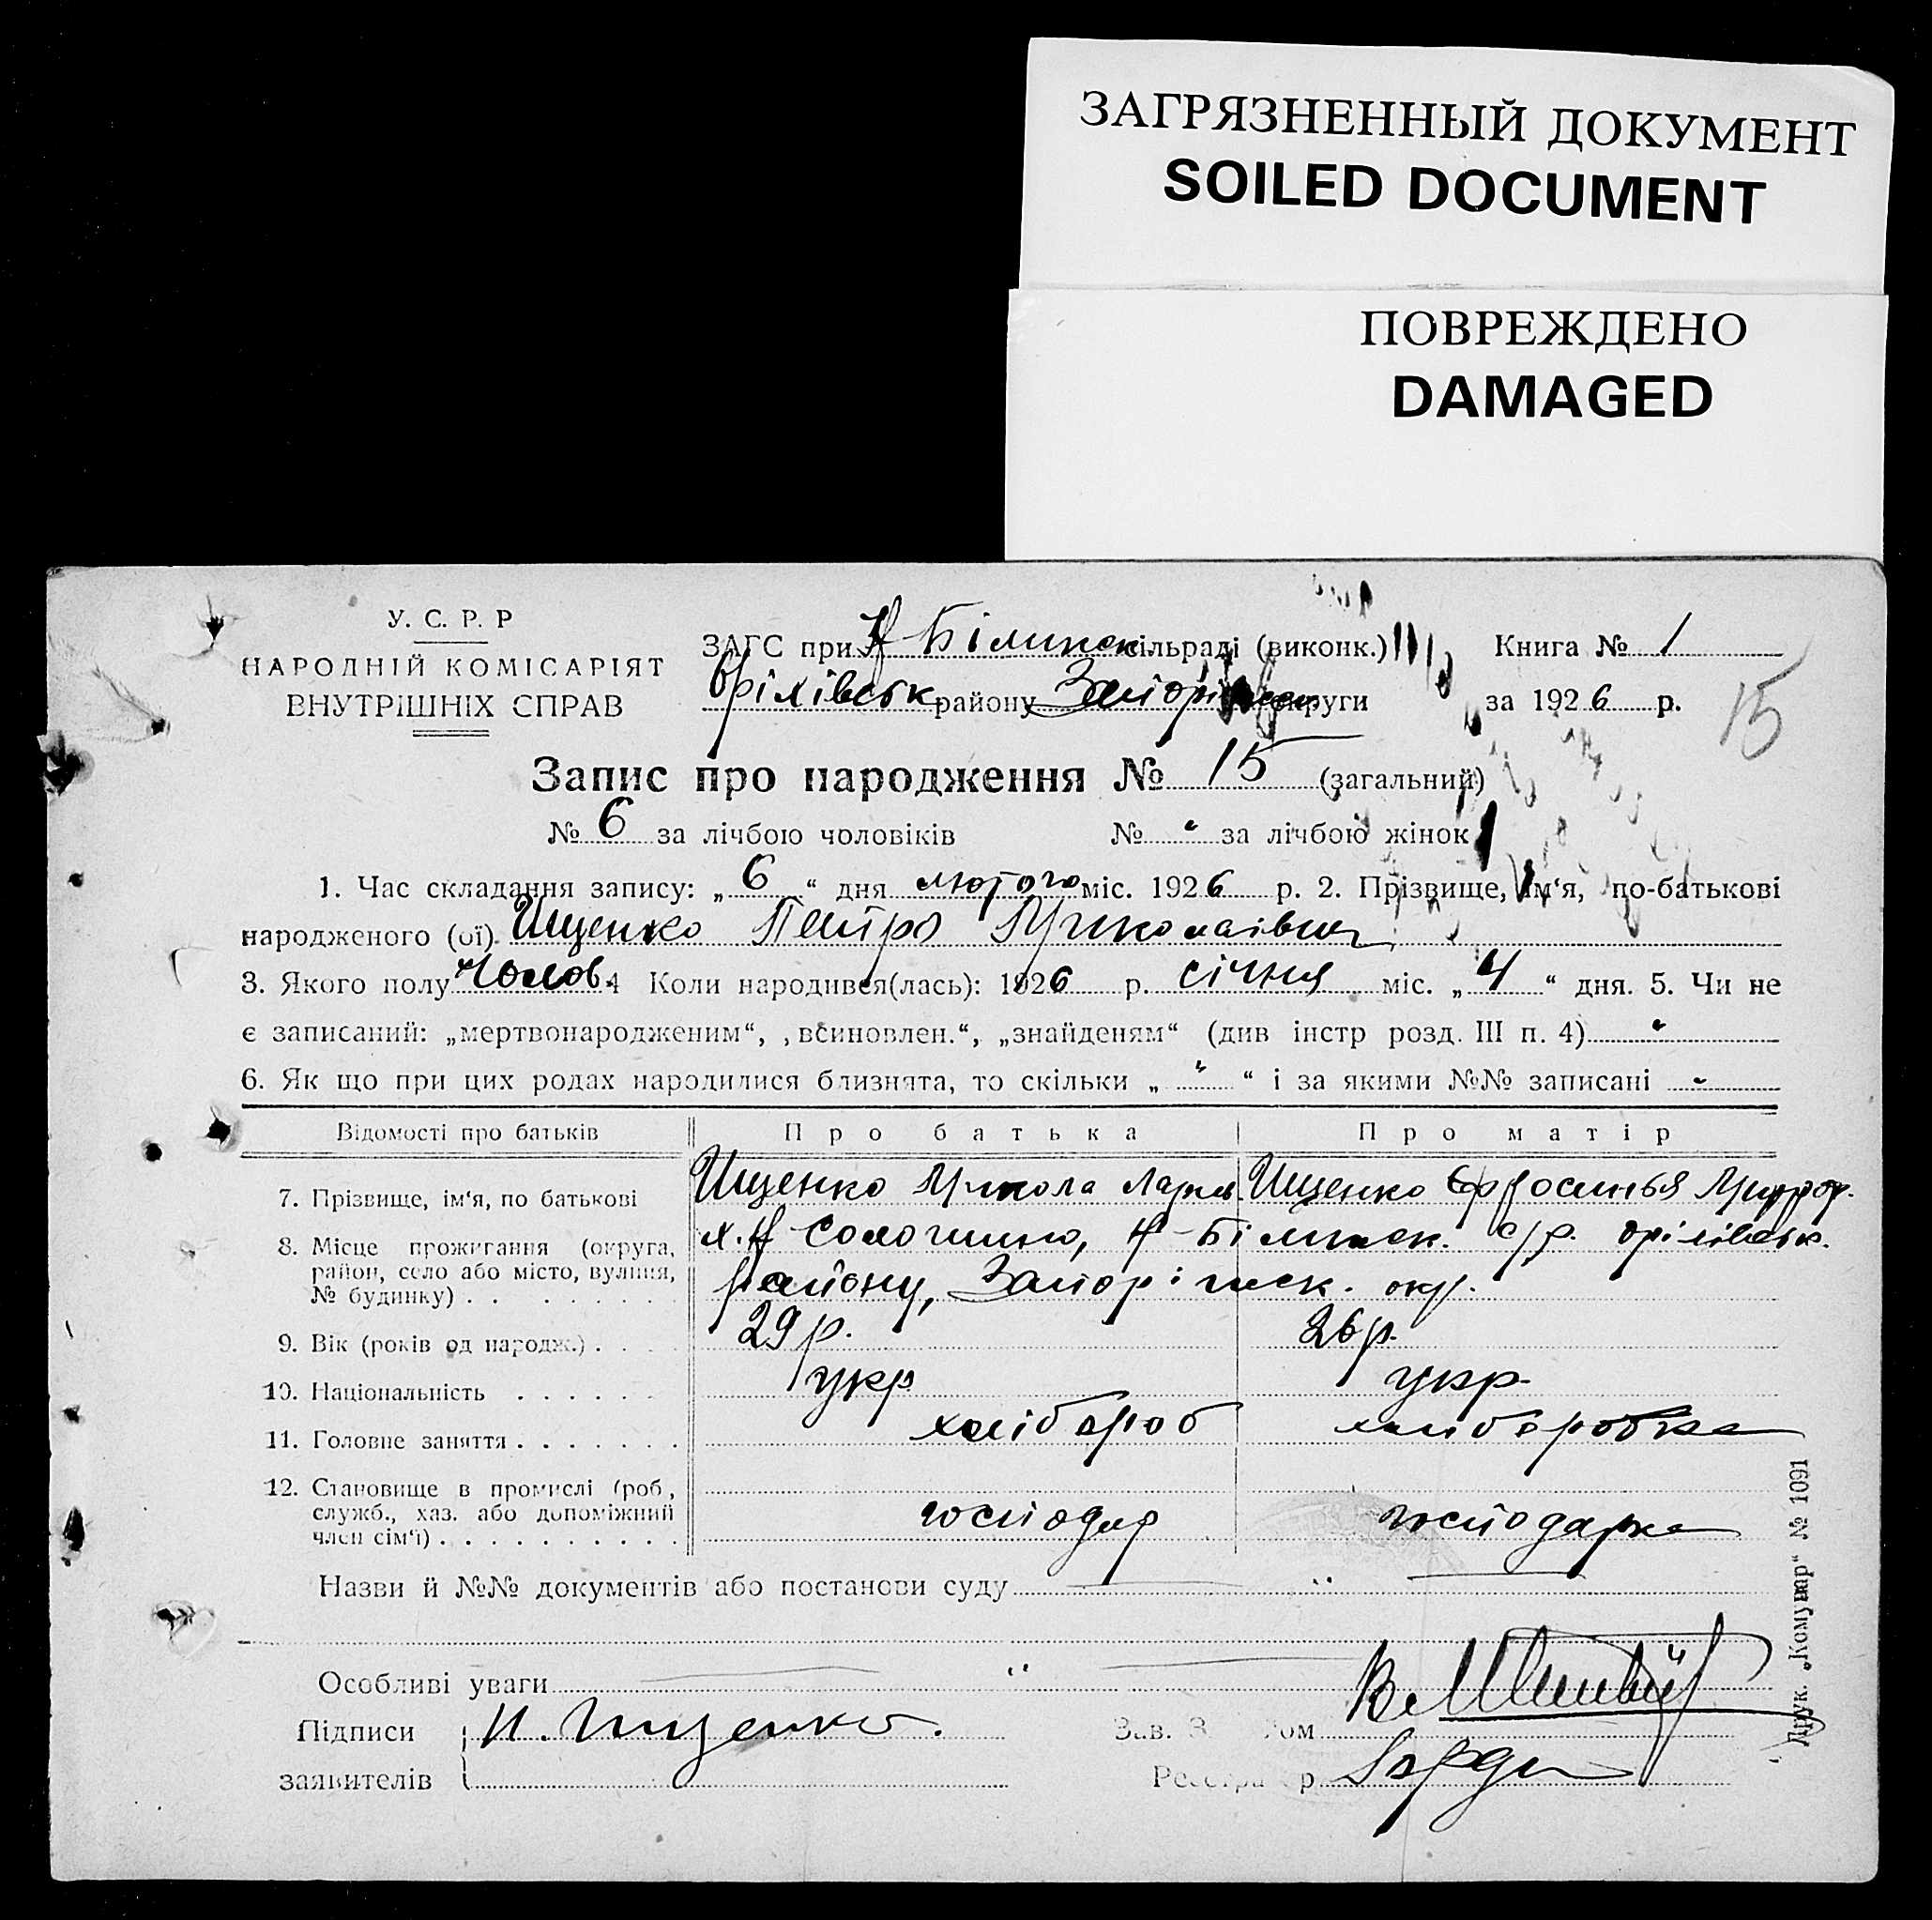 ЗАГРЯЗНЕННЫЙ ДОКУМЕНТ
SOILED DOCUMENT
ПОВРЕЖДЕНО
DAMAGED
У. С. Р. Р
НАРОДНІЙ КОМІСАРІЯТ
ВНУТРІШНІХ СПРАВ
ЗАГС при сільраді (виконк.)
Оріхівськ району округи
Книга № 1
за 1926 р.
15
Запис про народження № 15 (загальний)
№ 6 за лічбою чоловіків № " за лічбою жінок
1. Час складання запису: „ 6 “ дня лютого міс. 1926 р. 2. Прізвище, ім‘я, по-батькові
народженого (ої) Ищенко Петро Миколаівич
3. Якого полу чолов. 4 Коли народився(лась): 1926 р. січня міс. „ 4 “ дня. 5. Чи не
є записаний: „мертвонародженим“, „всиновлен.“, „знайденям“ (див інстр розд. III п. 4) "
6. Як що при цих родах народилися близнята, то скільки „ " “ і за якими №№ записані -
Відомості про батьків Про батька Про матір
7. Прізвище, ім‘я, по батькові Ищенко Микола Ищенко Єфросинья
8. Місце проживання (округа, район, село або місто, вулиця, № будинку) . . с/р. оріхівськ.
району, Запоріжск. окр.
9. Вік (років од народж.) . . . 29 р. 26 р.
10. Національність . . . . . . укр укр.
11. Головне заняття . . . . . . . хлібороб хліборобка
12. Становище в промислі (роб, служб., хаз. або допоміжний член сім‘ї) . . . . . . . . . . господар господарка
Назви й №№ документів або постанови суду "
Особливі уваги "
Підписи заявителів Н. Ищенко.
Зав. З ом
Реєстра р
Друк. „Комунар“ № 1091